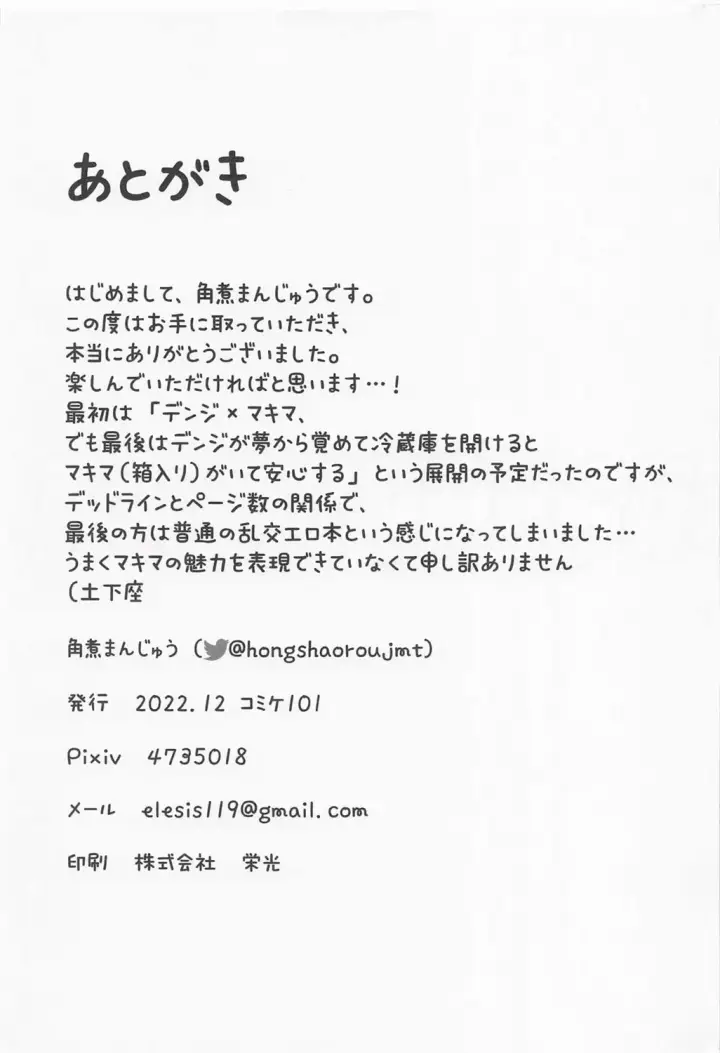 あとがき
はじめまして、角煮まんじゅうです。
この度はお手に取っていただき、
本当にありがとうございました。
楽しんでいただければと思います…！
最初は「デンジ×マキマ、
でも最後はデンジが夢から覚めて冷蔵庫を開けると
マキマ（箱入り）がいて安心する」という展開の予定だったのですが、
デッドラインとページ数の関係で、
最後の方は普通の乱交エロ本という感じになってしまいました…
うまくマキマの魅力を表現できていなくて申し訳ありません
（土下座
角煮まんじゅう（@hongshaoroujmt）
発行　2022.12 コミケ101
Pixiv　4735018
メール　elesis119@gmail.com
印刷　株式会社　栄光